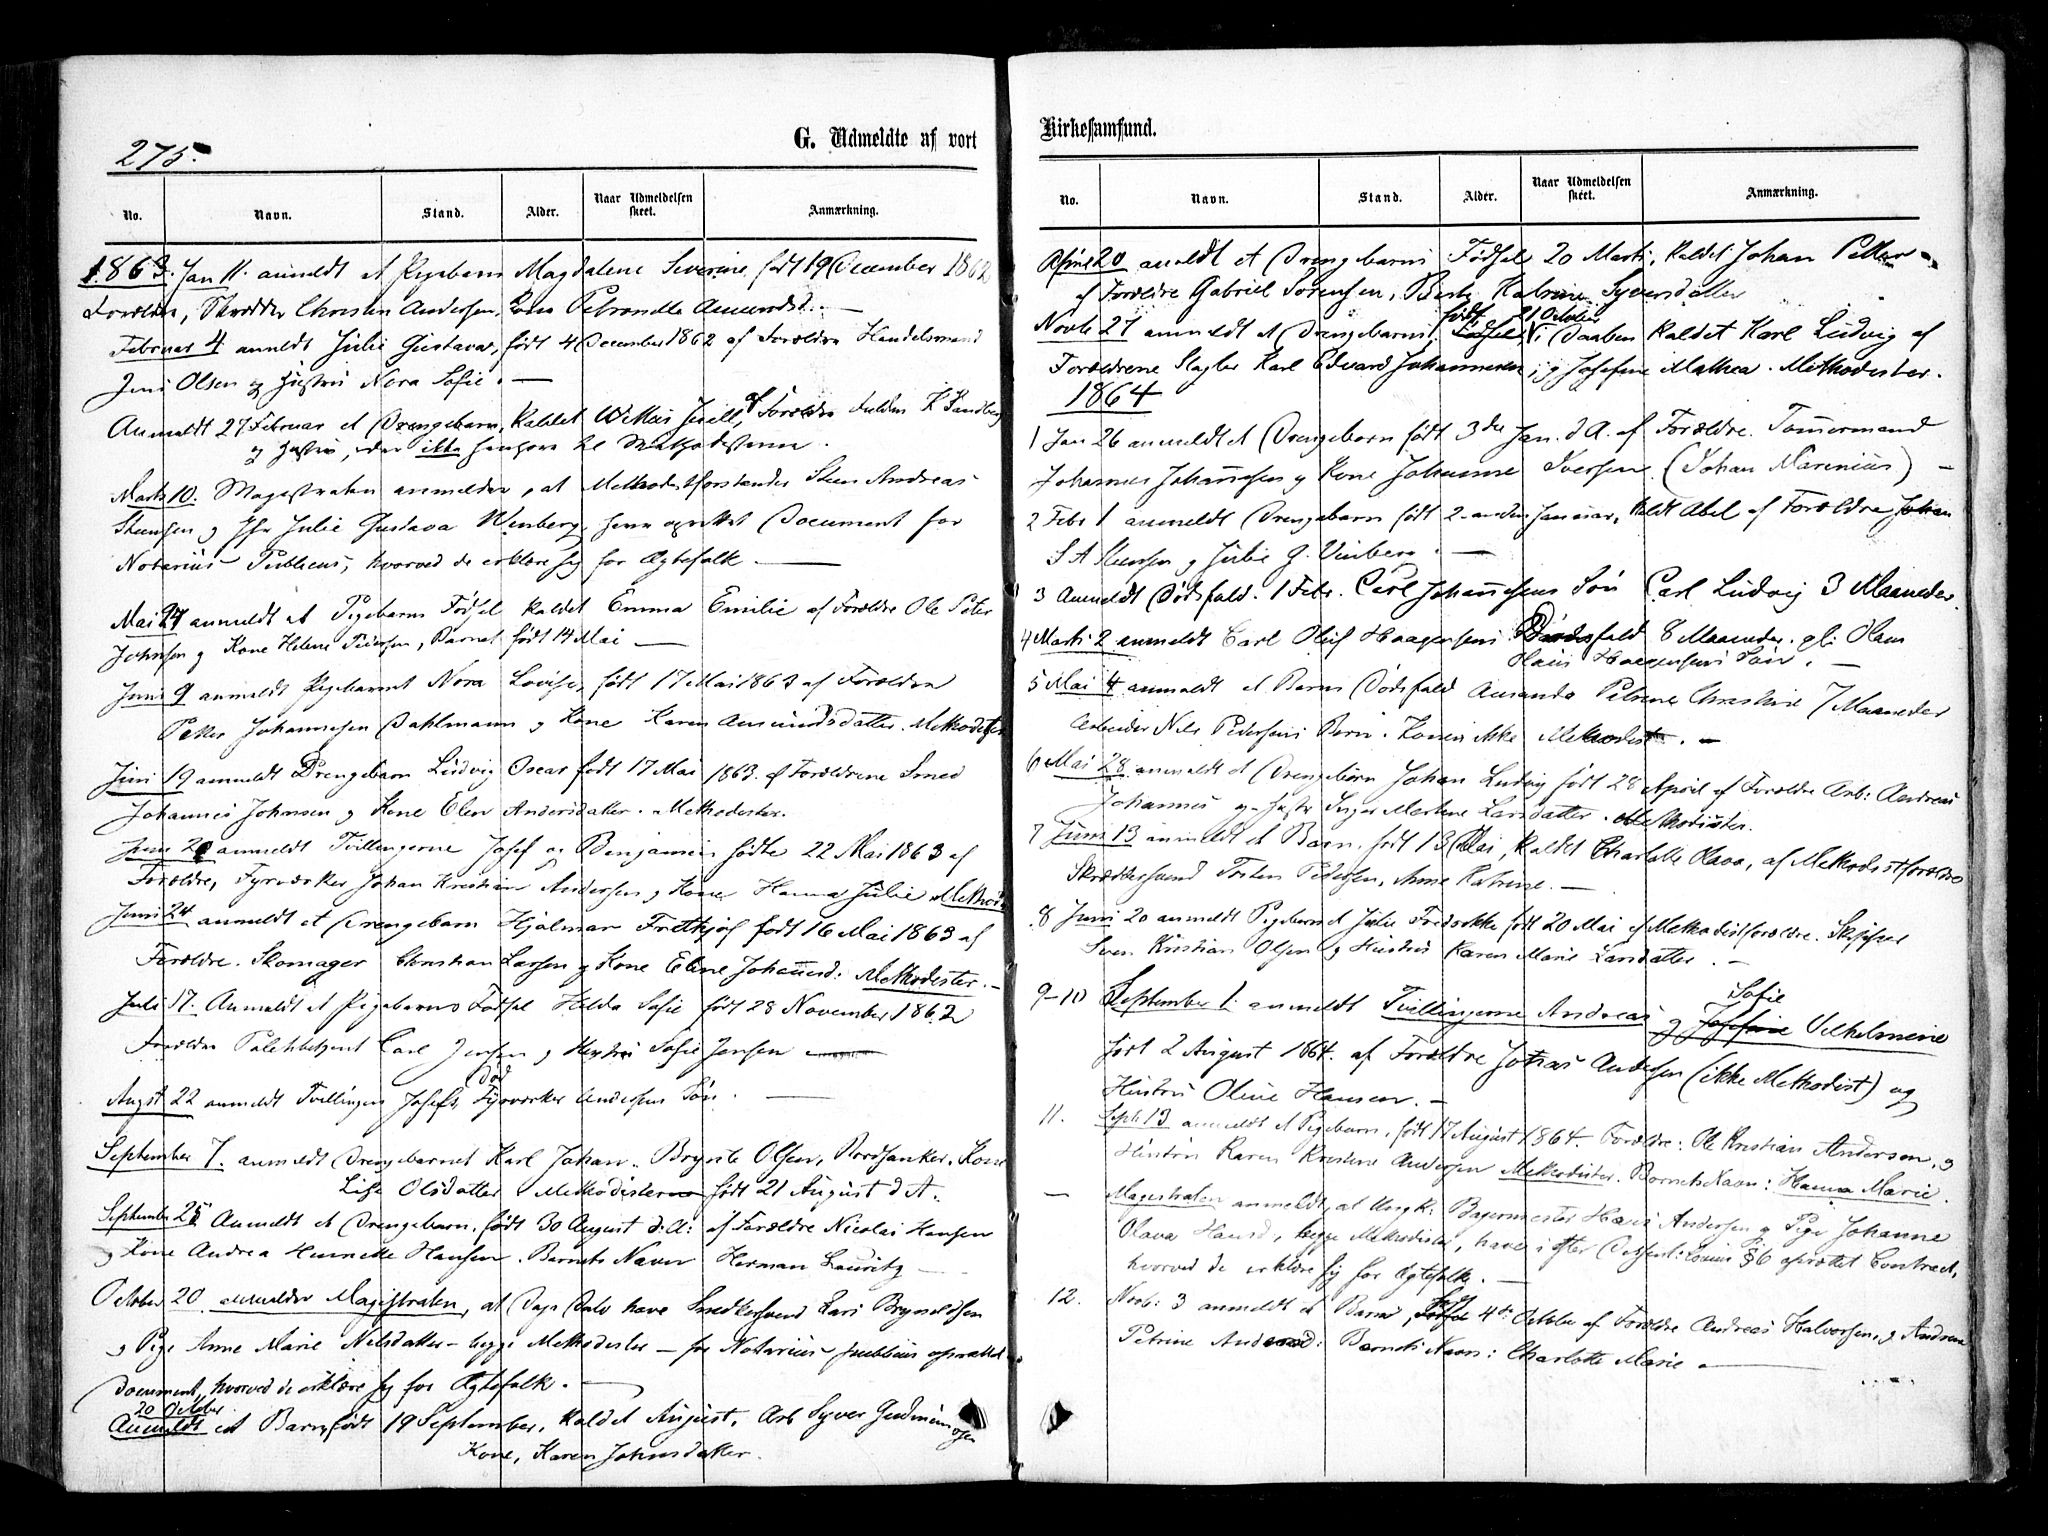 275.
G. Udmeldte af vort
No. Navn. Stand. Alder. Naar Udmeldelsen skeet. Anmærkning.
1863. Jan 11. anmeldt et Pigebarn Magdalene Severine, født 19 December 1862
Forældre, Skrædder Christen Andersen, Kone Petronelle
Februar 4 anmeldt Julie Gustava, født 4 December 1862 af Forældre Handelsmand
Jens Olsen og Hustru Nora Sofie. —
Anmeldt 27 Februar et Drengebarn, kaldet af Forældre
og Hustru, der ikke henhøre til Methodisterne.
Marts 10. Magistraten anmelder, at Methodistforstander Steen Andreas
Steensen og Jfr Julie Gustava Winberg have oprettet Document for
Notarius Publicus, hvorved de erklære sig for Ægtefolk —
Mai 27 anmeldt et Pigebarns Fødsel kaldet Emma Emilie af Forældre Ole Peter
Johnsen og Kone Helene Pedersen, Barnet født 14 Mai —
Juni 9 anmeldt Pigebarnet Nora Lovise, født 17 Mai 1863 af Forældre
Peter Johannesen Dahlmann og Kone Karen Amundsdatter. Methodister
Juni 19 anmeldt Drengebarn Ludvig Oscar født 17 Mai 1863. af Forældrene Smed
Johannes Johnsen og Kone Elen Andersdatter. Methodister.
Juni 20 anmeldt Tvillingerne Josef og Benjamin fødte 22 Mai 1863 af
Forældre, Fyrværker Johan Kristian Andersen og Kone Hanna Julie
Juni 24 anmeldt et Drengebarn Hjalmar Frithjof født 16 Mai 1863 af
Forældre. Skomager Christian Larsen og Kone Eline Johannsd: Methodister. —
Juli 17. Anmeldt et Pigebarns Fødsel Hilda Sofie født 28 November 1862
Forældre Politibetjent Carl Jensen og Hustru Sofie Jensen
død
Augst 22 anmeldt Tvillingen Josefs, Fyrværker Andersens Søn. —
September 7. anmeldt Drengebarnet Karl Johan. Brynte Olsen, Kone
Lise Olsdatter Methodister født 21 August d A.
September 25 Anmeldt et Drengebarn, født 30 August d: A: af Forældre Nicolai Hansen
og Kone Andrea Henriette Hansen. Barnets Navn Herman Lauritz —
October 20 anmelder Magistraten, at Dags Dato have Snedkersvend Lars Brynildsen
og Pige Anne Marie Nilsdatter – begge Methodister – for Notarius publicus oprettet
Document, hvorved de erklære sig for Ægtefolk. —
20 October
Anmeldt et Barn født 19 September, kaldet August, Arb Syver Gudmundsen
Kone, Karen Johnsdatter.
Kirkesamfund.
No. Navn. Stand. Alder. Naar Udmeldelsen skeet. Anmærkning.
April 20 anmeldt et Drengebarns Fødsel 20 Marts, kaldet Johan Petter
af Forældre Gabriel Sørensen, Berte Katrine Syversdatter
født 21 October
Novb 27 anmeldt et Drengebarns Fødsel i Daaben kaldet Karl Ludvig af
Forældrene Slagter Karl Edvard Johannesen og Josefine Mathea. Methodister.
1864
1 Jan 26 anmeldt et Drengebarn født 3die Jan. d A. af Forældre. Tømmermand
Johannes Johannesen og Kone Johanne Iversen (Johan Marenius) —
2 Febr 1 anmeldt Drengebarn født 2-anden Januar, kaldt Abel af Forældre Johan
S A Steensen og Julie G. Vinberg. —
3 Anmeldt Dødsfald. 1 Febr. Carl Johannesens Søn Carl Ludvig 3 Maaneder.
4 Marts 2 anmeldt Carl Oluf Haagensens Dødsfald 8 Maaneder gl:
Haagensens Søn. —
5 Mai 4 anmeldt et Barns Dødsfald Amanda Petrine Christine 7 Maaneder
Arbeider Nils Pedersens Barn. Konen ikke Methodist. —
6 Mai 28 anmeldt et Drengebarn Johan Ludvig født 28 April af Forældre Arb: Andreas
Johannes og Hustr Inger Martene Larsdatter. Methodister.
7 Juni 13 anmeldt et Barn, født 13 Mai, kaldet Charlotte Olava, af Methodistforældre
Skræddersvend Torsten Pedersen, Anne Katrine. —
8 Juni 20 anmeldt Pigebarnet Julie Fredrikke født 20 Mai af Methodistforældre. Skipper
Sven Kristian Olsen og Hustru Karen Marie Larsdatter. —
Sofie
9–10 September 1. anmeldt Tvillingerne Andreas og Josefine Vilhelmine
født 2 August 1864. af Forældre Johan Andersen (ikke Methodist) og
Hustru Oline Hansen. —
11. Septb 13 anmeldt et Pigebarn, født 17 August 1864. Forældre: Ole Kristian Andersen, og
Hustru Karen Kristine Andersen Methodister. Barnets Navn: Hanna Marie.
— Magistraten anmeldt, at Ungk: Bagermester Hans Andersen og Pige Johanne
Olava Hansd, begge Methodister, have i efter §6 oprettet Contract,
hvorved de erklære sig for Ægtefolk. —
født
12. Novb: 3 anmeldt et Barn, Fødsel 4de October af Forældre Andreas Halvorsen, og Andrea
Petrine Andersd: Barnets Navn: Charlotte Marie. —